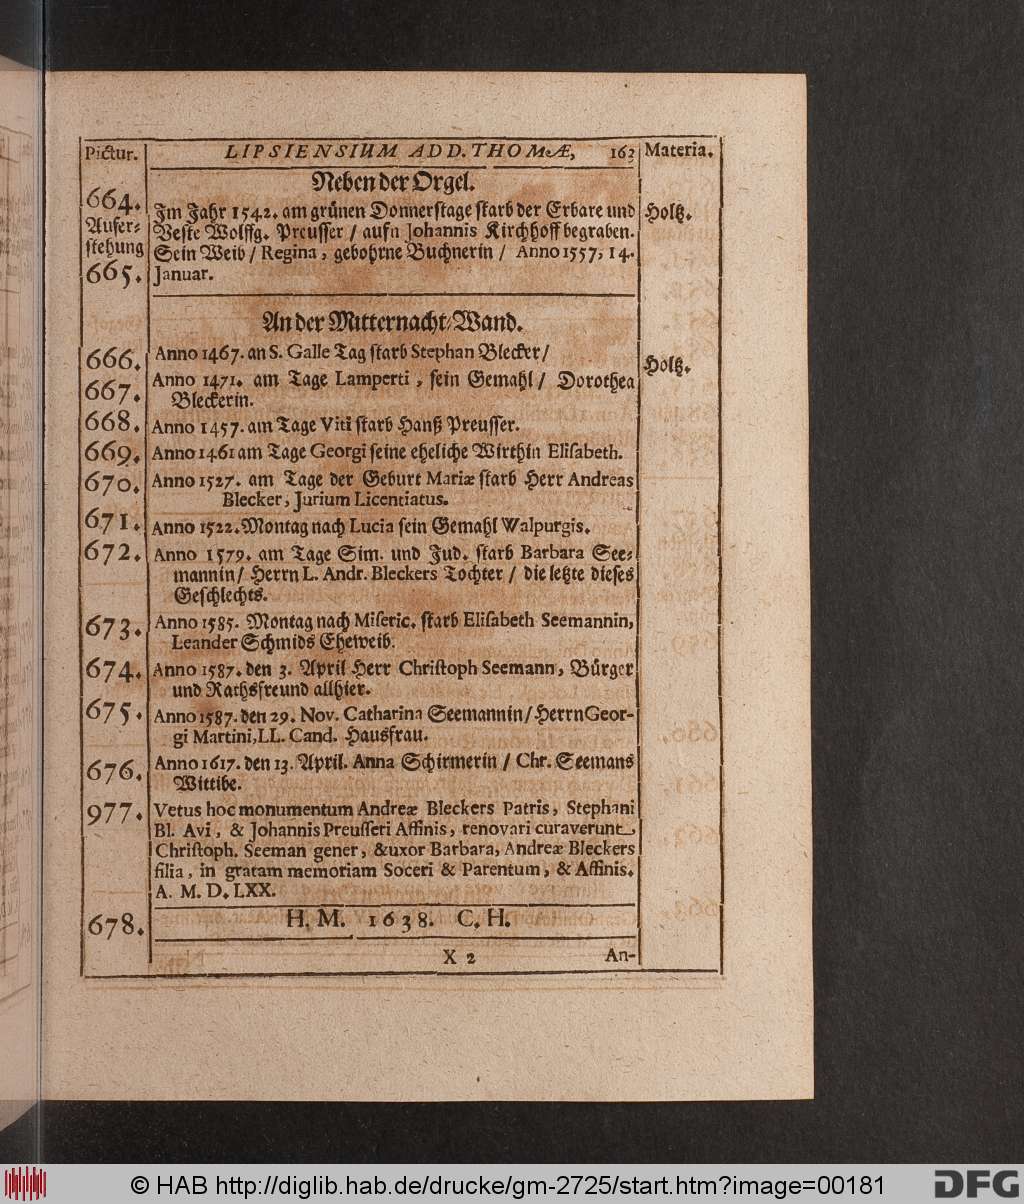 Pictur. LIPSIENSIUM ADD. THOMÆ, 163 Materia.
Neben der Orgel.
664. Im Jahr 1542. am grünen Donnerstage starb der Erbare und Holtz.
Aufer- Veste Wolffg. Preusser / aufn Johannis Kirchhoff begraben.
stehung Sein Weib / Regina, gebohrne Buchnerin / Anno 1557, 14.
665. Januar.
An der Mitternacht-Wand.
666. Anno 1467. an S. Galle Tag starb Stephan Blecker / Holtz.
667. Anno 1471. am Tage Lamperti, sein Gemahl / Dorothea
Bleckerin.
668. Anno 1457. am Tage Viti starb Hanß Preusser.
669. Anno 1461 am Tage Georgi seine eheliche Wirthin Elisabeth.
670. Anno 1527. am Tage der Geburt Mariæ starb Herr Andreas
Blecker, Jurium Licentiatus.
671. Anno 1522. Montag nach Lucia sein Gemahl Walpurgis.
672. Anno 1579. am Tage Sim. und Jud. starb Barbara See-
mannin / Herrn L. Andr. Bleckers Tochter / die letzte dieses
Geschlechts.
673. Anno 1585. Montag nach Miseric. starb Elisabeth Seemannin,
Leander Schmids Eheweib.
674. Anno 1587. den 3. April Herr Christoph Seemann, Bürger
und Rathsfreund allhier.
675. Anno 1587. den 29. Nov. Catharina Seemannin / Herrn Geor-
gi Martini, LL. Cand. Hausfrau.
676. Anno 1617. den 13. April. Anna Schirmerin / Chr. Seemans
Wittibe.
977. Vetus hoc monumentum Andreæ Bleckers Patris, Stephani
Bl. Avi, & Johannis Preusseri Affinis, renovari curaverunt,
Christoph. Seeman gener, & uxor Barbara, Andreæ Bleckers
filia, in gratam memoriam Soceri & Parentum, & Affinis.
A. M. D. LXX.
678. H. M. 1638. C. H.
X 2 An-
© HAB http://diglib.hab.de/drucke/gm-2725/start.htm?image=00181
DFG